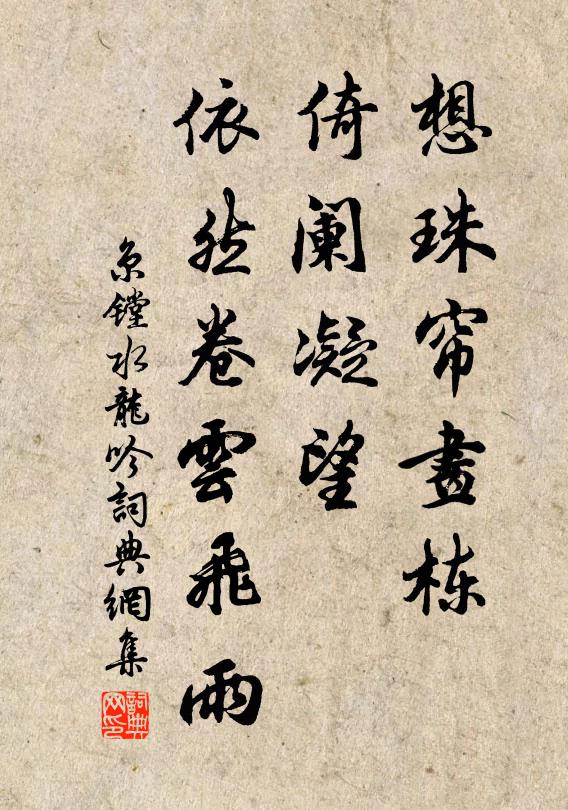 想珠帘畫栋
倚阑凝望
依然卷雲飛雨
京鏜水龍吟詞典網集
詞典网印